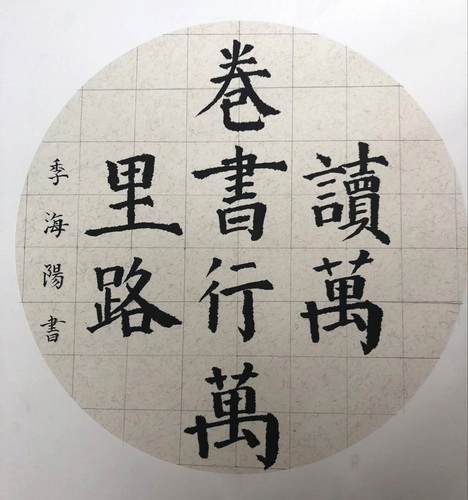 讀萬
卷書行萬
里路
季海陽書